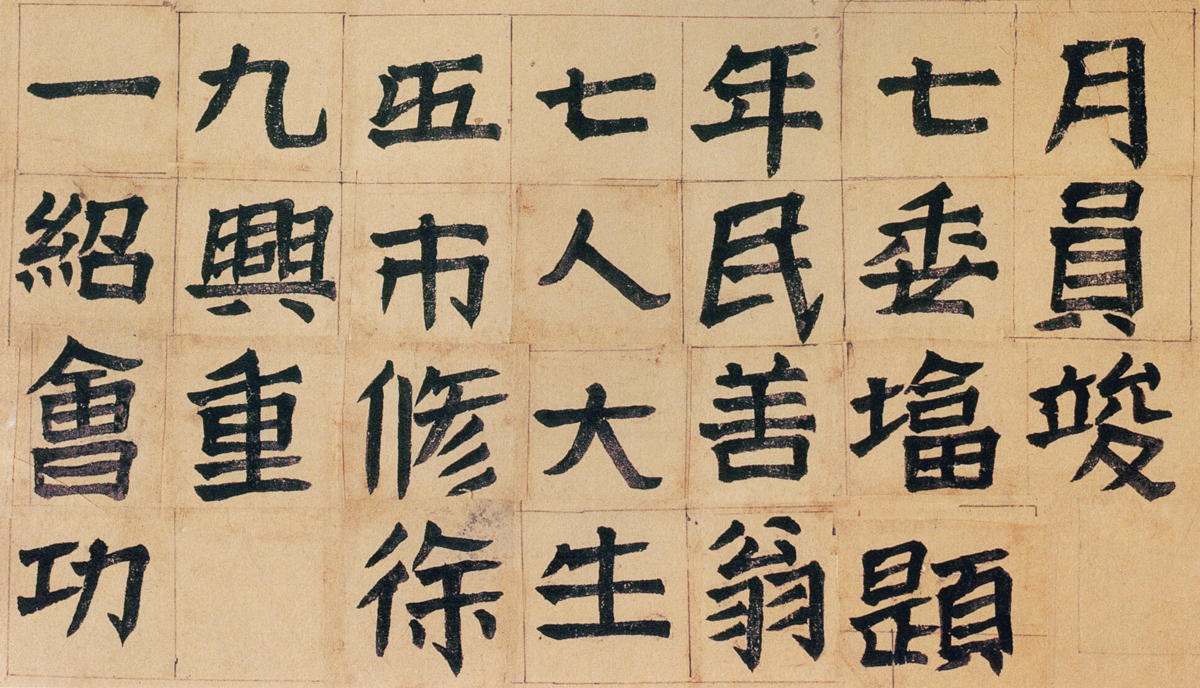 一九五七年七月
紹興市人民委員
會重修大善墖竣
功 徐生翁題